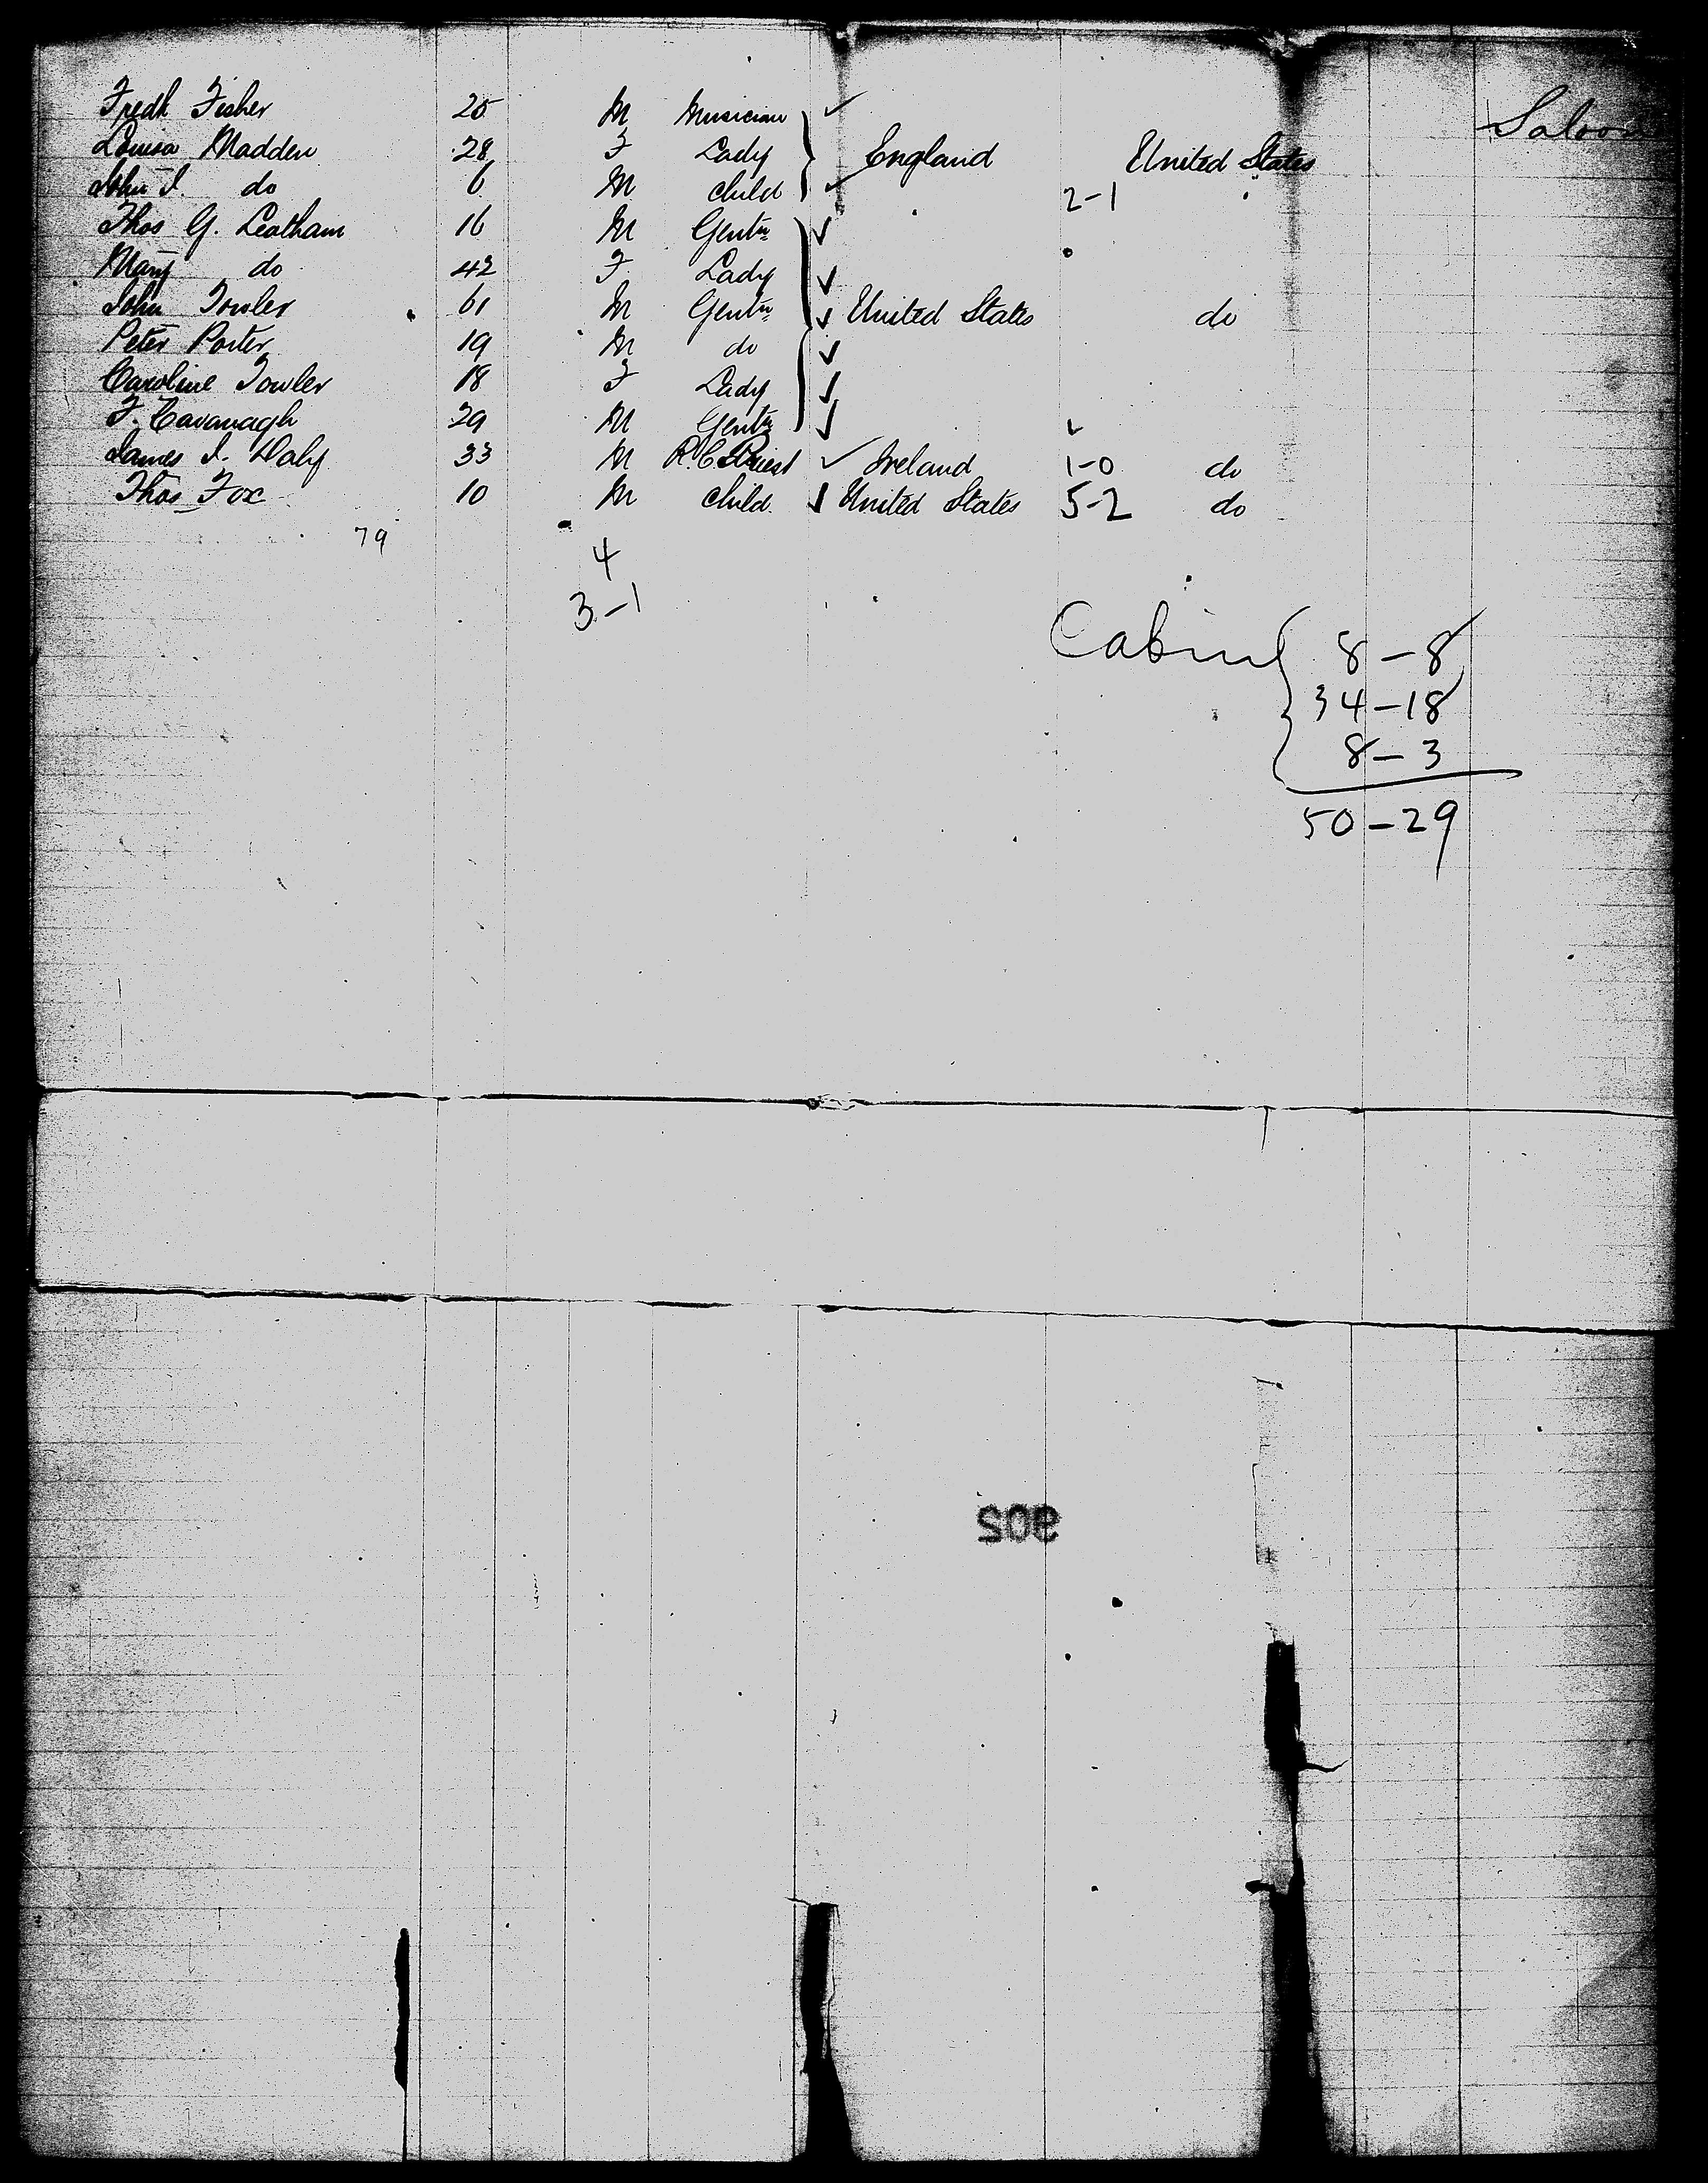 Fredk Fisher 25 M Musician Saloon
Louisa Madden 28 F Lady England United States
John J. do 6 M child 2-1
Thos G. Leatham 16 M Gentn
Mary do 42 F Lady
John Towler 61 M Gentn United States do
Peter Porter 19 M do
Caroline Towler 18 F Lady
F. Cavanagh 29 M Gentn
James J. Daly 33 M R.C. Priest Ireland 1-0 do
Thos Fox 10 M child. United States 5-2 do
79
4
3-1
Cabin 8-8
34-18
8-3
50-29